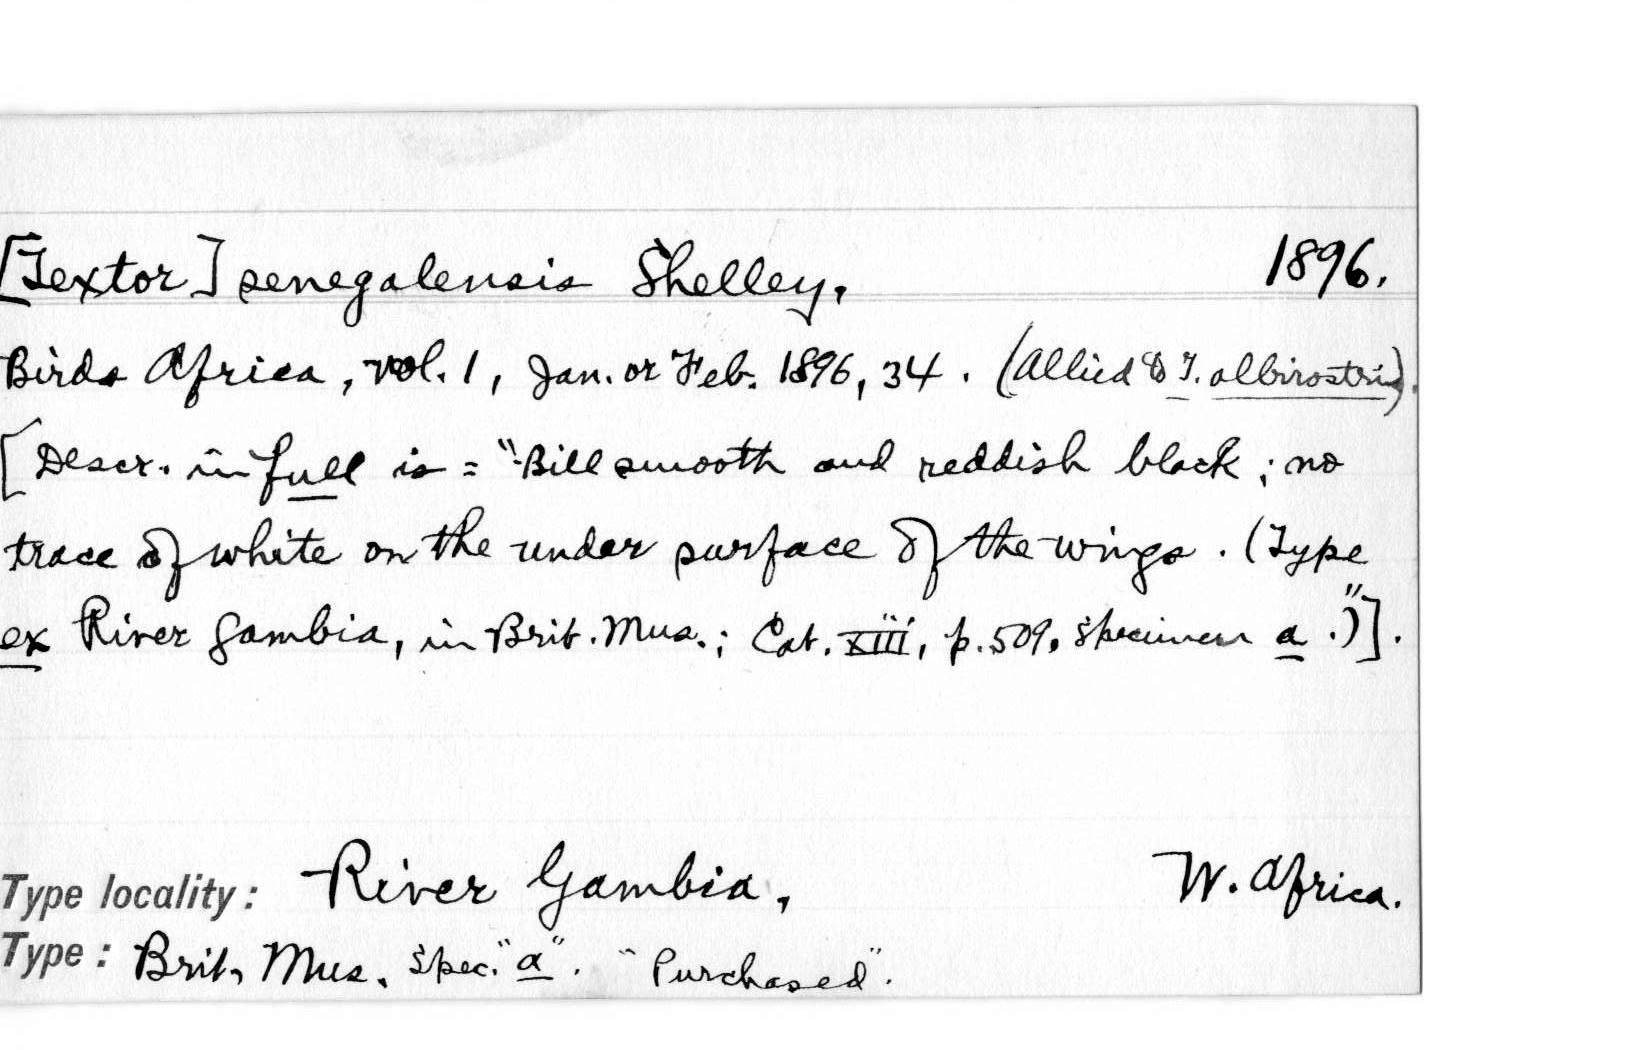 [Textor] senegalensis Shelley, 1896.
Birds Africa, vol. 1, Jan. or Feb. 1896, 34. (Allied to T. albirostris).
[Descr. in full is = "Bill smooth and reddish black; no
trace of white on the under surface of the wings. (Type
ex River Gambia, in Brit. Mus.; Cat. XIII, p. 509, specimen a.)"].
Type locality: River Gambia, W. Africa.
Type: Brit. Mus. spec. "a". "Purchased".